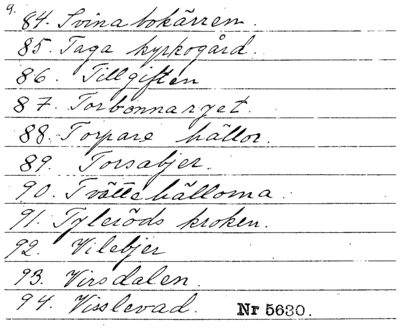 9.
84. Svinabokärren.
85. Taga kyrkogård.
86. Tillgiften
87. Torbonnarget.
88. Torpare hällor.
89. Torsabjer.
90. Tvättehälloma.
91. Tyleröds kroken.
92. Vilebjer
93. Virsdalen.
94. Visslevad. Nr 5630.